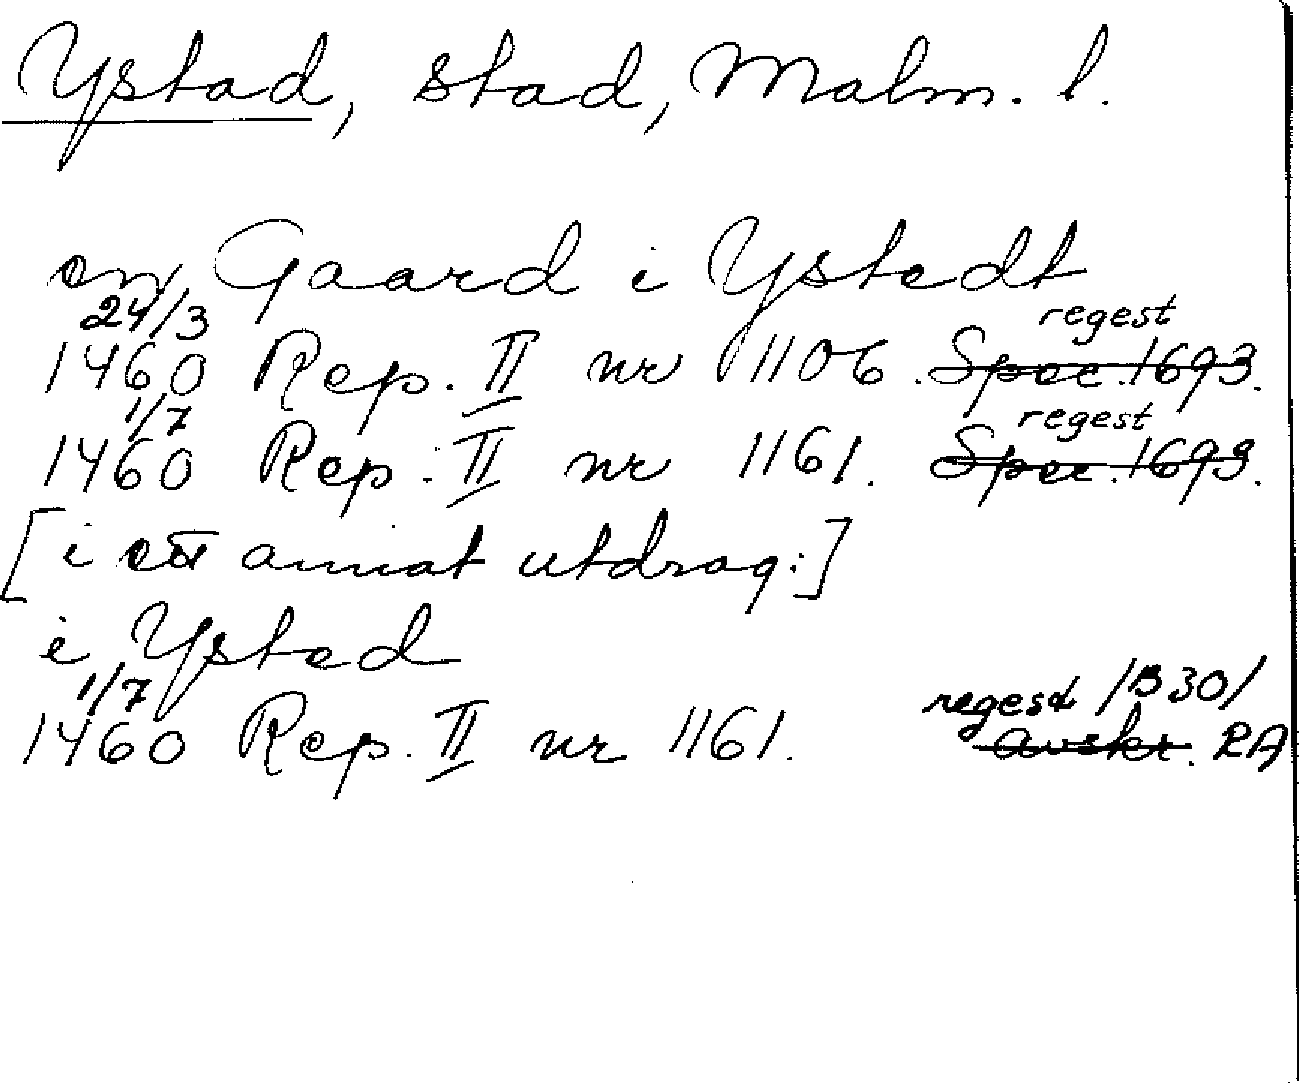 Ystad, stad, Malm. l.
en Gaard i Ystedt
24/3 regest
1460 Rep. II nr 1106. Spec. 1693.
1/7 regest
1460 Rep. II nr 1161. Spec. 1693.
[i ett annat utdrag:]
i Ysted
1/7 regest /B 30/
1460 Rep. II nr 1161. avskr. RA